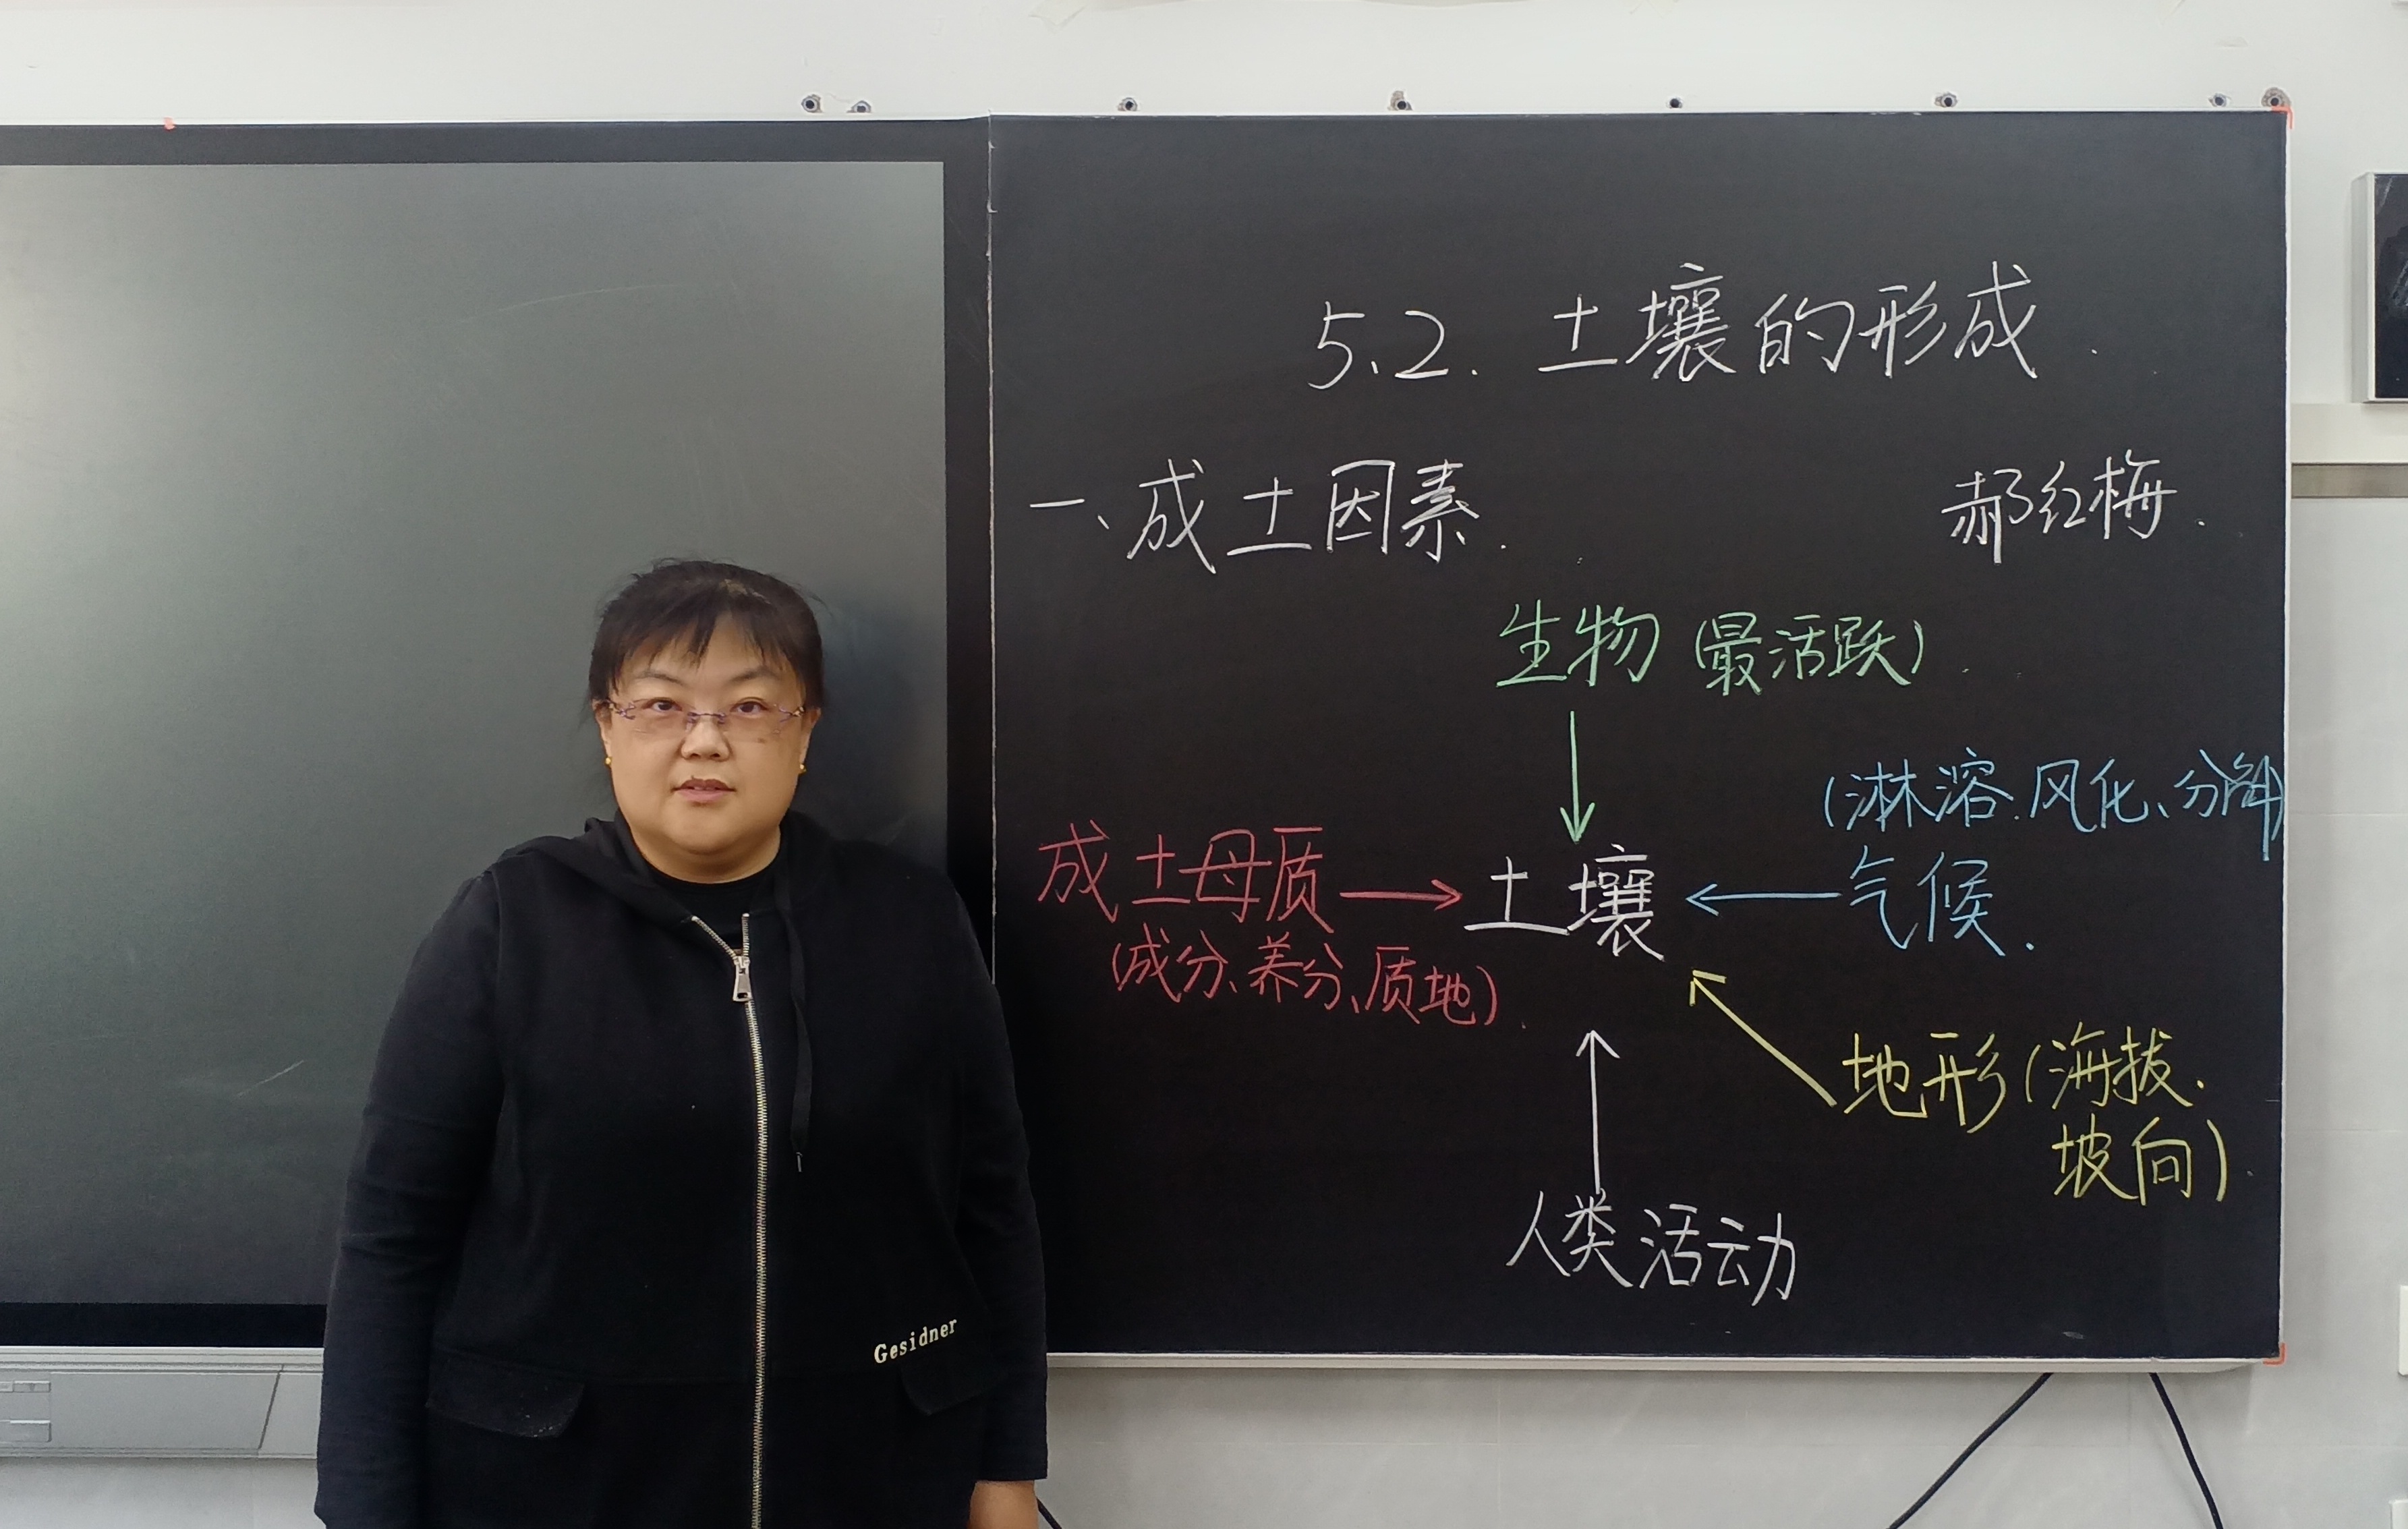 5.2. 土壤的形成.
一、成土因素.
郝红梅.
生物 (最活跃).
(淋溶.风化、分解)
成土母质 → 土壤 ← 气候.
(成分、养分、质地).
地形 (海拔.
坡向).
人类活动
Gesidner